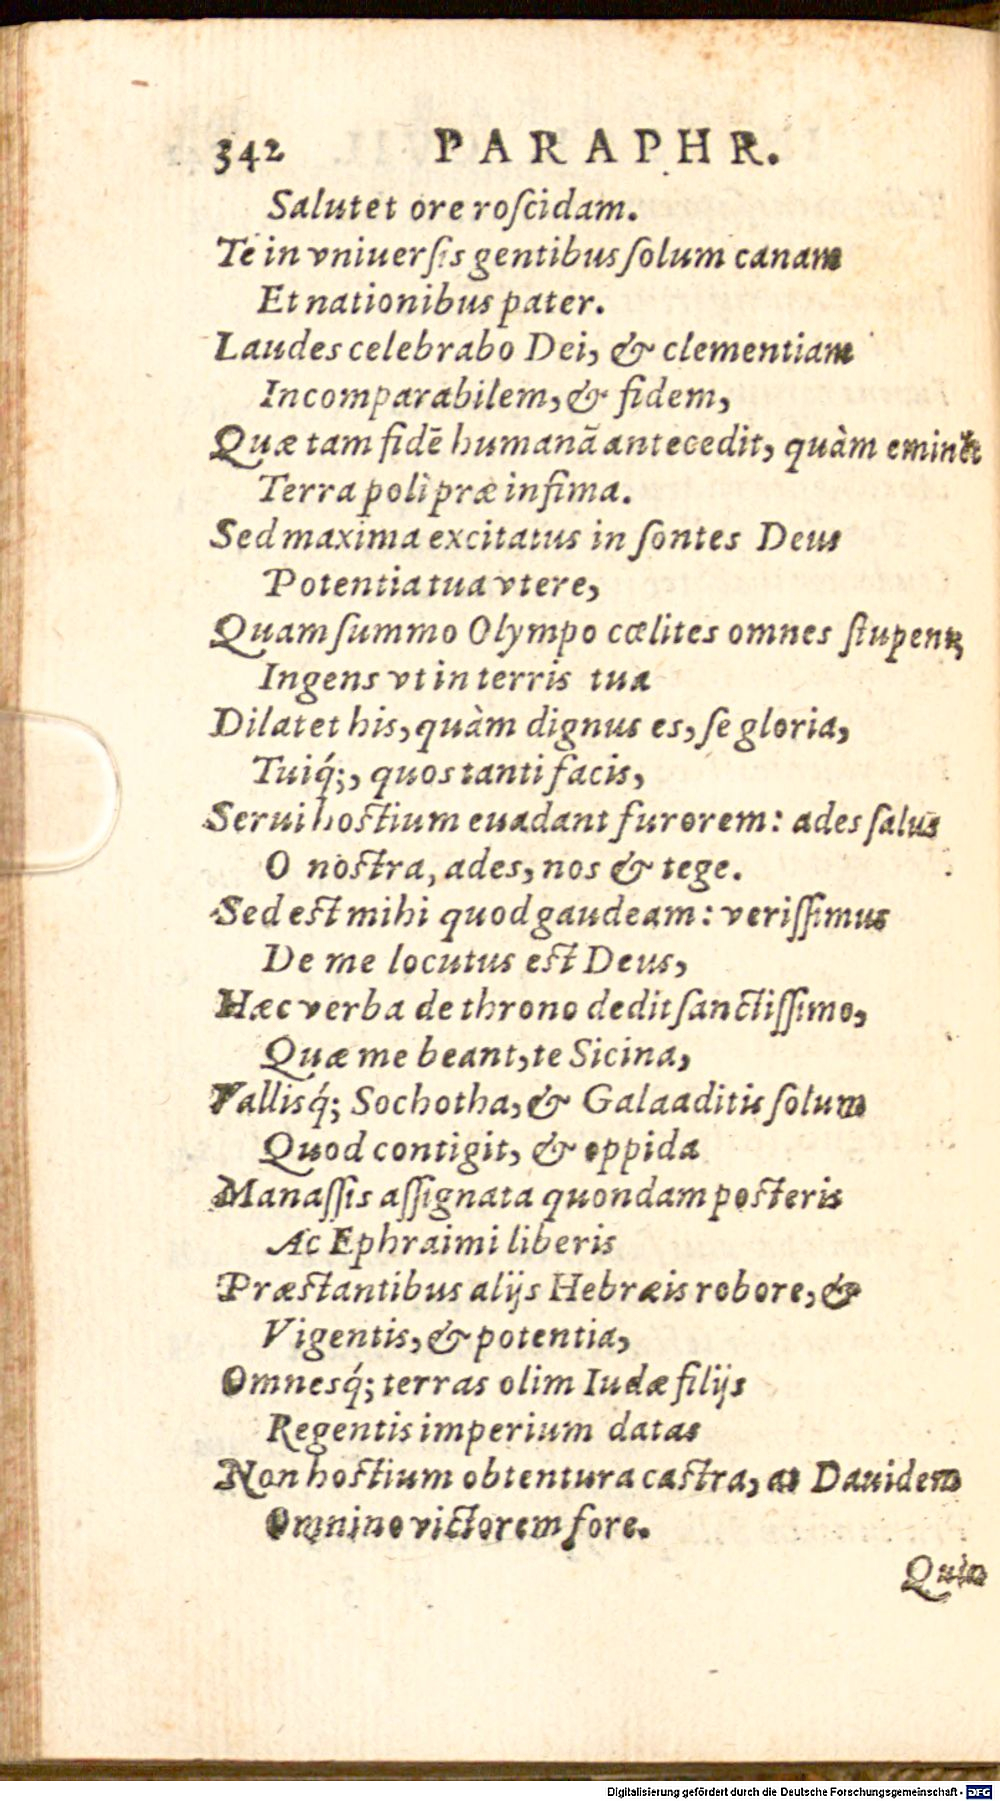 342 PARAPHR.
Salutet ore roſcidam.
Te in vniuerſis gentibus ſolum canam
Et nationibus pater.
Laudes celebrabo Dei, & clementiam
Incomparabilem, & fidem,
Quæ tam fidē humanā antecedit, quàm eminet
Terra poli præ infima.
Sed maxima excitatus in ſontes Deus
Potentia tua vtere,
Quam ſummo Olympo cœlites omnes ſtupent,
Ingens vt in terris tua
Dilatet his, quàm dignus es, ſe gloria,
Tuiq́;, quos tanti facis,
Serui hoſtium euadant furorem: ades ſalus
O noſtra, ades, nos & tege.
Sed eſt mihi quod gaudeam: veriſſimus
De me locutus eſt Deus,
Hæc verba de throno dedit ſanctiſſimo,
Quæ me beant, te Sicina,
Vallisq́; Sochotha, & Galaaditis ſolum
Quod contigit, & oppida
Manaſſis aſſignata quondam poſteris
Ac Ephraimi liberis
Præſtantibus alijs Hebræis robore, &
Vigentis, & potentia,
Omnesq́; terras olim Iudæ filijs
Regentis imperium datas
Non hoſtium obtentura caſtra, at Dauidem
Omnino victorem fore.
Quin
Digitalisierung gefördert durch die Deutsche Forschungsgemeinschaft - DFG